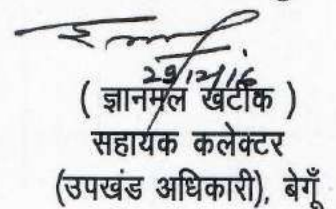 29/12/16
( ज्ञानमल खटीक )
सहायक कलेक्टर
(उपखंड अधिकारी), बेगूँ